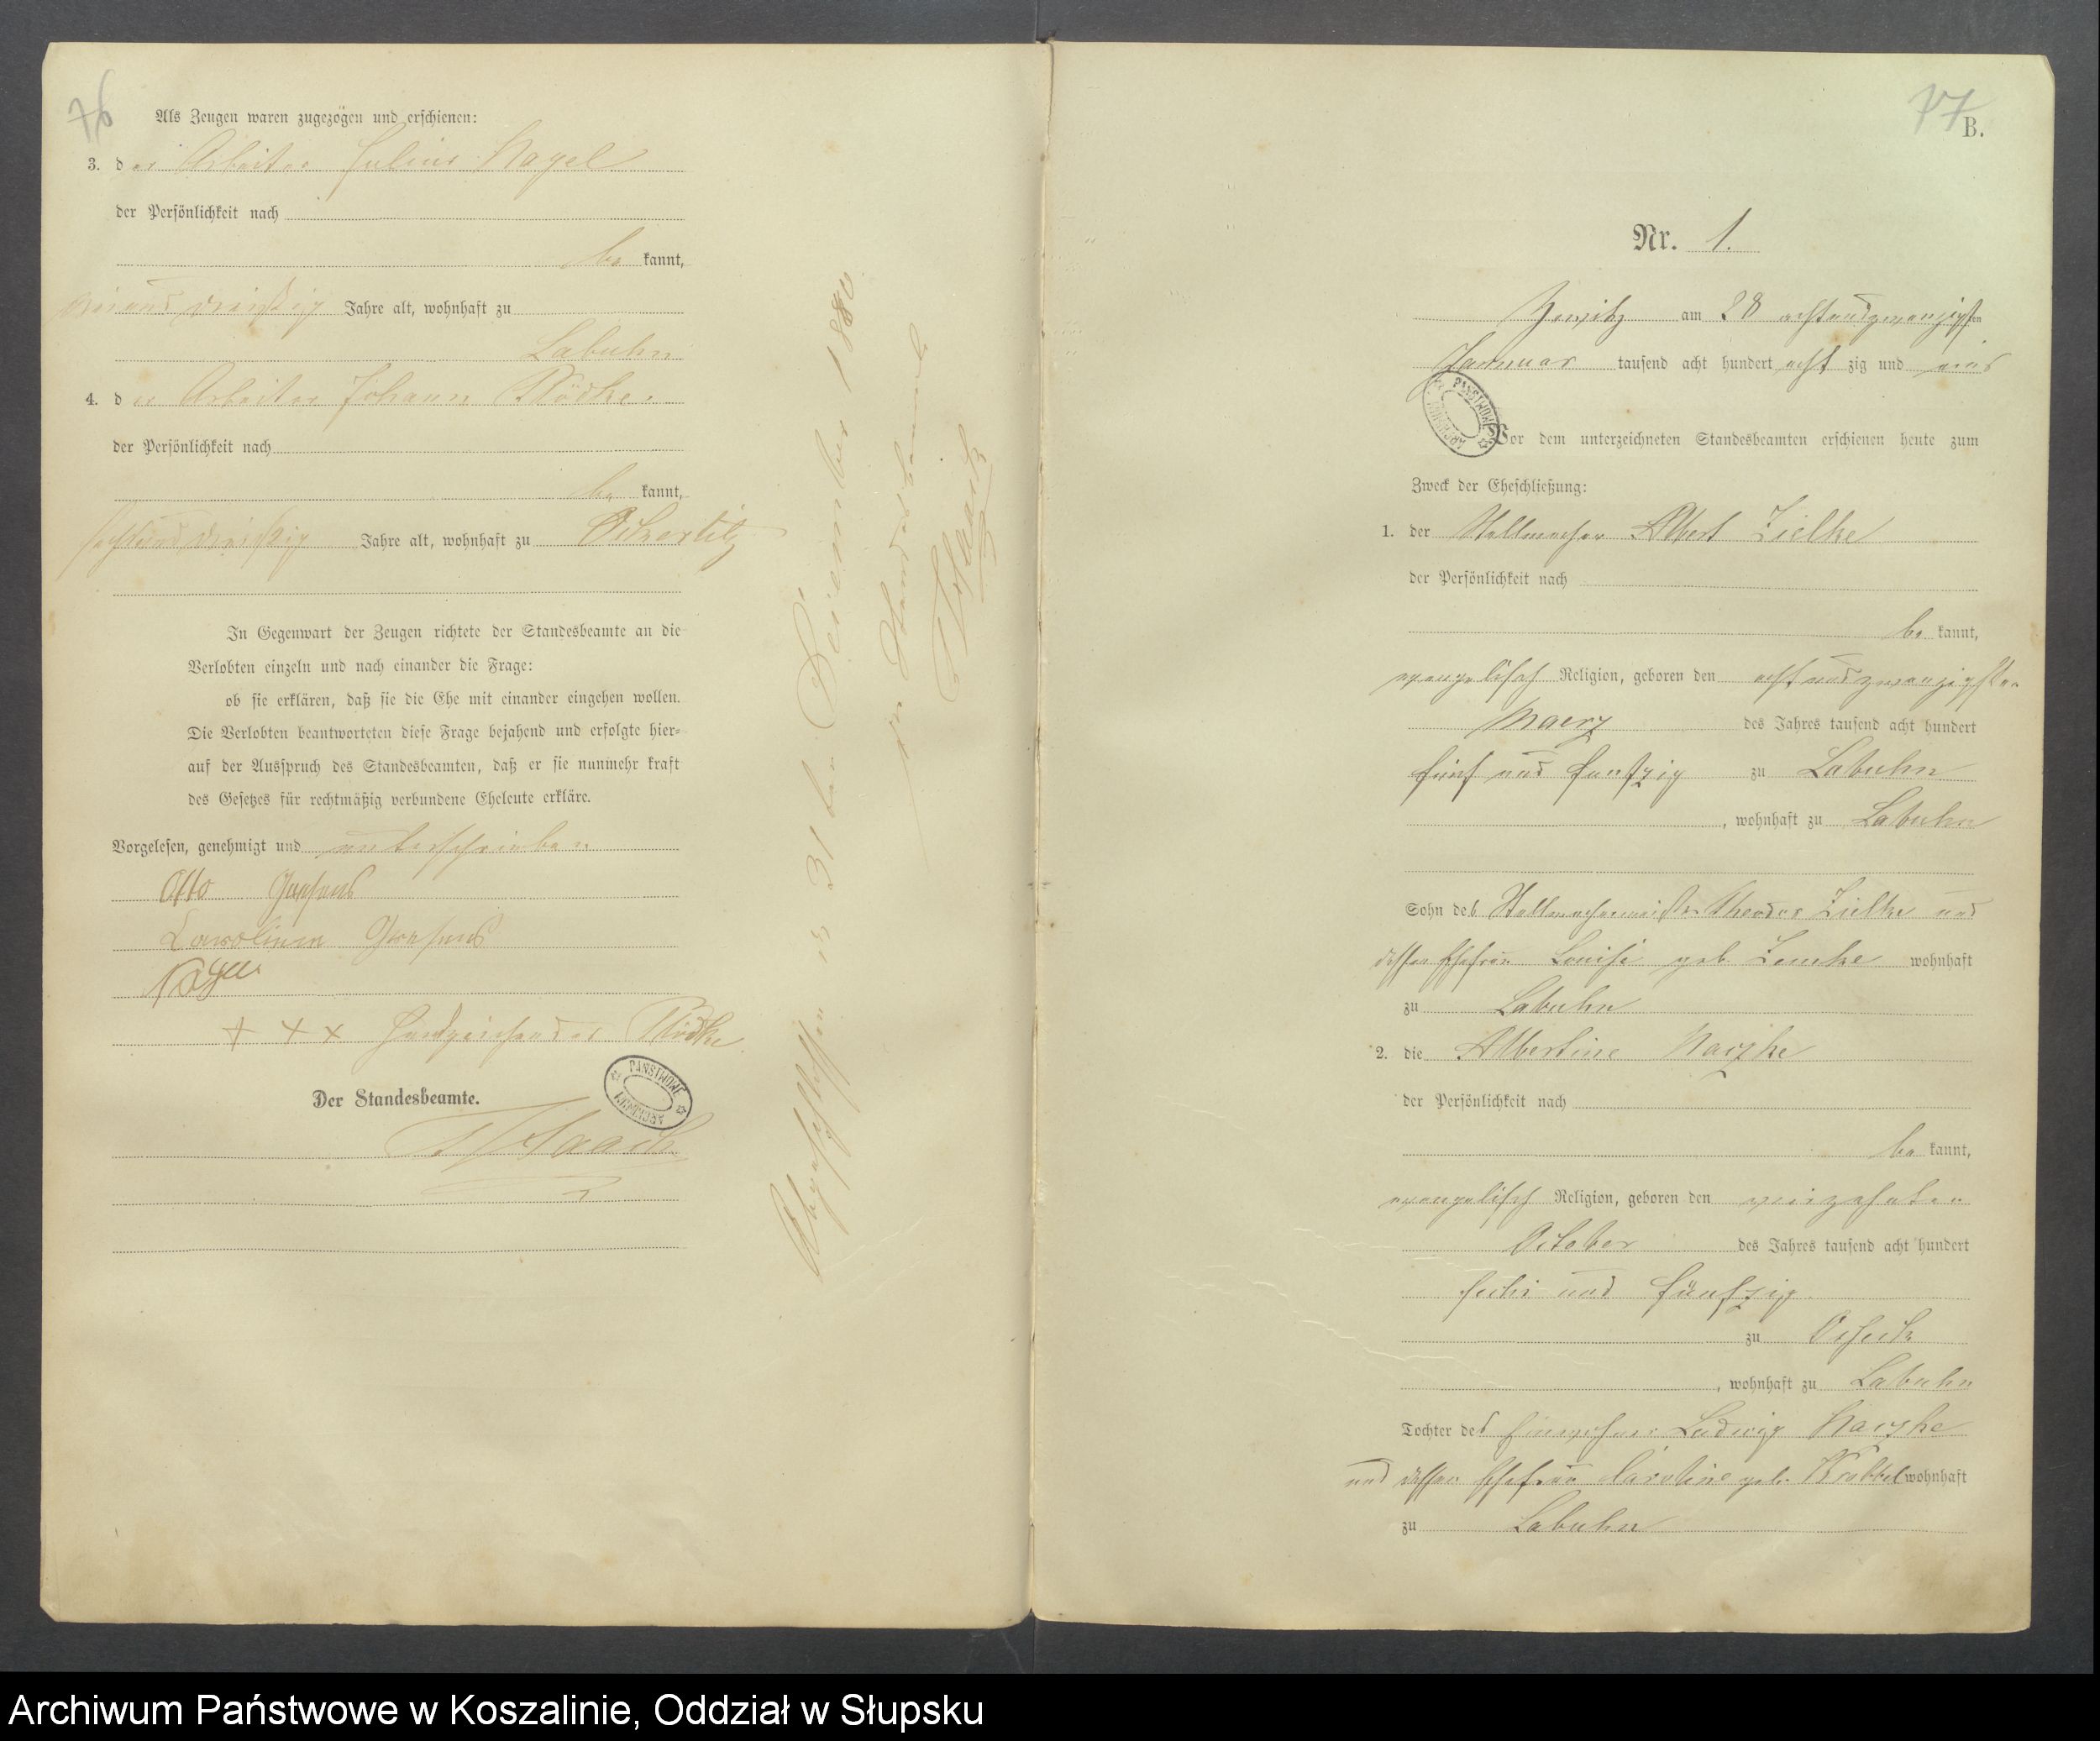 76
Als Zeugen waren zugezogen und erschienen:
3. der Arbeiter Julius Nagel
der Persönlichkeit nach
be kannt,
dreißig Jahre alt, wohnhaft zu
Labuhn
4. der Arbeiter Johann Rödke
der Persönlichkeit nach
be kannt,
dreißig Jahre alt, wohnhaft zu
In Gegenwart der Zeugen richtete der Standesbeamte an die
Verlobten einzeln und nach einander die Frage:
ob sie erklären, daß sie die Ehe mit einander eingehen wollen.
Die Verlobten beantworteten diese Frage bejahend und erfolgte hier-
auf der Ausspruch des Standesbeamten, daß er sie nunmehr kraft
des Gesetzes für rechtmäßig verbundene Eheleute erkläre.
Vorgelesen, genehmigt und unterschrieben
Otto
Caroline
+ + + Handzeichen des
Der Standesbeamte.
PAŃSTWOWE ARCHIWUM
Abgeschlossen 31 ten 1880
Der Standesbeamte
77
B.
Nr. 1.
Jewitz am 28 achtundzwanzigsten
Januar tausend acht hundert acht zig und eins
PAŃSTWOWE ARCHIWUM
Vor dem unterzeichneten Standesbeamten erschienen heute zum
Zweck der Eheschließung:
1. der Stellmacher Albert Zielke
der Persönlichkeit nach
be kannt,
evangelisch Religion, geboren den achtundzwanzigsten
Maerz des Jahres tausend acht hundert
fünf und funfzig zu Labuhn
, wohnhaft zu Labuhn
Sohn des Stellmachermeister Theodor Zielke und
dessen Ehefrau Louise geb. Lemke wohnhaft
zu Labuhn
2. die Albertine Narzke
der Persönlichkeit nach
be kannt,
evangelisch Religion, geboren den vierzehnten
October des Jahres tausend acht hundert
sechs und fünfzig
zu
, wohnhaft zu Labuhn
Tochter des Einwohner Ludwig Narzke
und dessen Ehefrau Caroline geb. Krabbel wohnhaft
zu Labuhn
Archiwum Państwowe w Koszalinie, Oddział w Słupsku